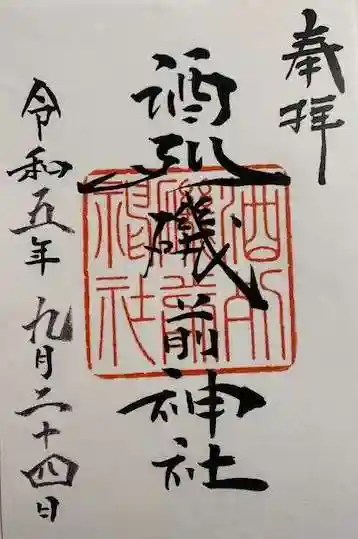 奉拝
酒列磯前神社
令和五年 九月二十四日
酒列
磯前
神社